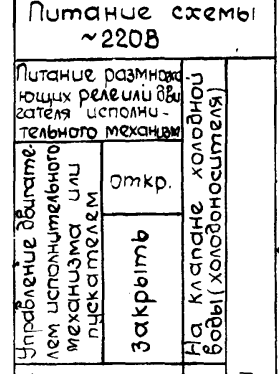 Питание схемы
~220В
Питание размножа
ющих реле или дви
гателя исполни-
тельного механизм
Управление двигате-
лем исполнительного
механизма или
пускателем
откр.
закрыть
На клапане холодной
воды (холодоносителя)